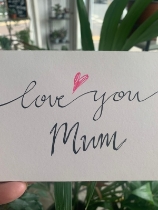 love you
Mum